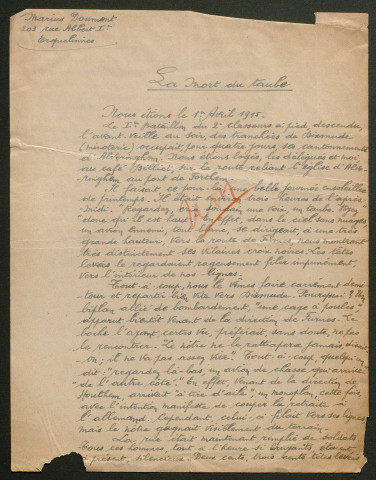 Marius Daumont
203, rue Albert Ier
Erquelinnes
La mort du taube
Nous étions le 1er Avril 1915.
Le Ier Bataillon du 2e chasseurs à pied, descendu,
l'avant-veille au soir, des tranchées de Dixmude
(minoterie) occupait, pour quatre jours, ses cantonnements
d'Alveringhem. Nous étions logés, les délégués et moi
au café, sur la route reliant l'église d'Alve-
ringhem au pont de Forthem.
Il faisait, ce jour-là, belle journée ensoleillée
de printemps. Il était trois heures de l'après-
midi. "Regardez, une voix, un taube. Voyez
donc qu'il est haut" En effet, dans le ciel sans nuages
un avion ennemi, tout blanc, se dirigeait, à une très
grande hauteur, vers la route de Furnes, nous montrant
très distinctement ses vilaines croix noires. Les têtes
levées le regardaient rageusement filer impunément,
vers l'intérieur de nos lignes.
Tout à coup, nous le vîmes faire carrément demi-
tour et repartir bien vite vers Dixmude. Pourquoi? Un
biplan allié de bombardement, "une cage à poules"
apparut bientôt venant de la direction de Furnes. Le
boche l'ayant certes vu, préférait, sans doute, ne pas
le rencontrer. Le nôtre ne le rattrapera jamais disait-
on; il ne va pas assez vite". Tout-à-coup, quelqu'un
dit: "regardez là-bas, un avion de chasse qui arrive
de l'autre côté". En effet, venant de la direction de
Houthem, arrivait "à tire d'aile", un monoplan, cette fois,
avec l'intention manifeste de couper la retraite à
l'allemand. Cependant, celui-ci filait vers ses lignes
mais le nôtre gagnait visiblement du terrain.
La rue était maintenant remplie de soldats.
Tous ces hommes, tout à l'heure si bruyants, étaient
à présent, silencieux. Deux cents, trois cents têtes levées